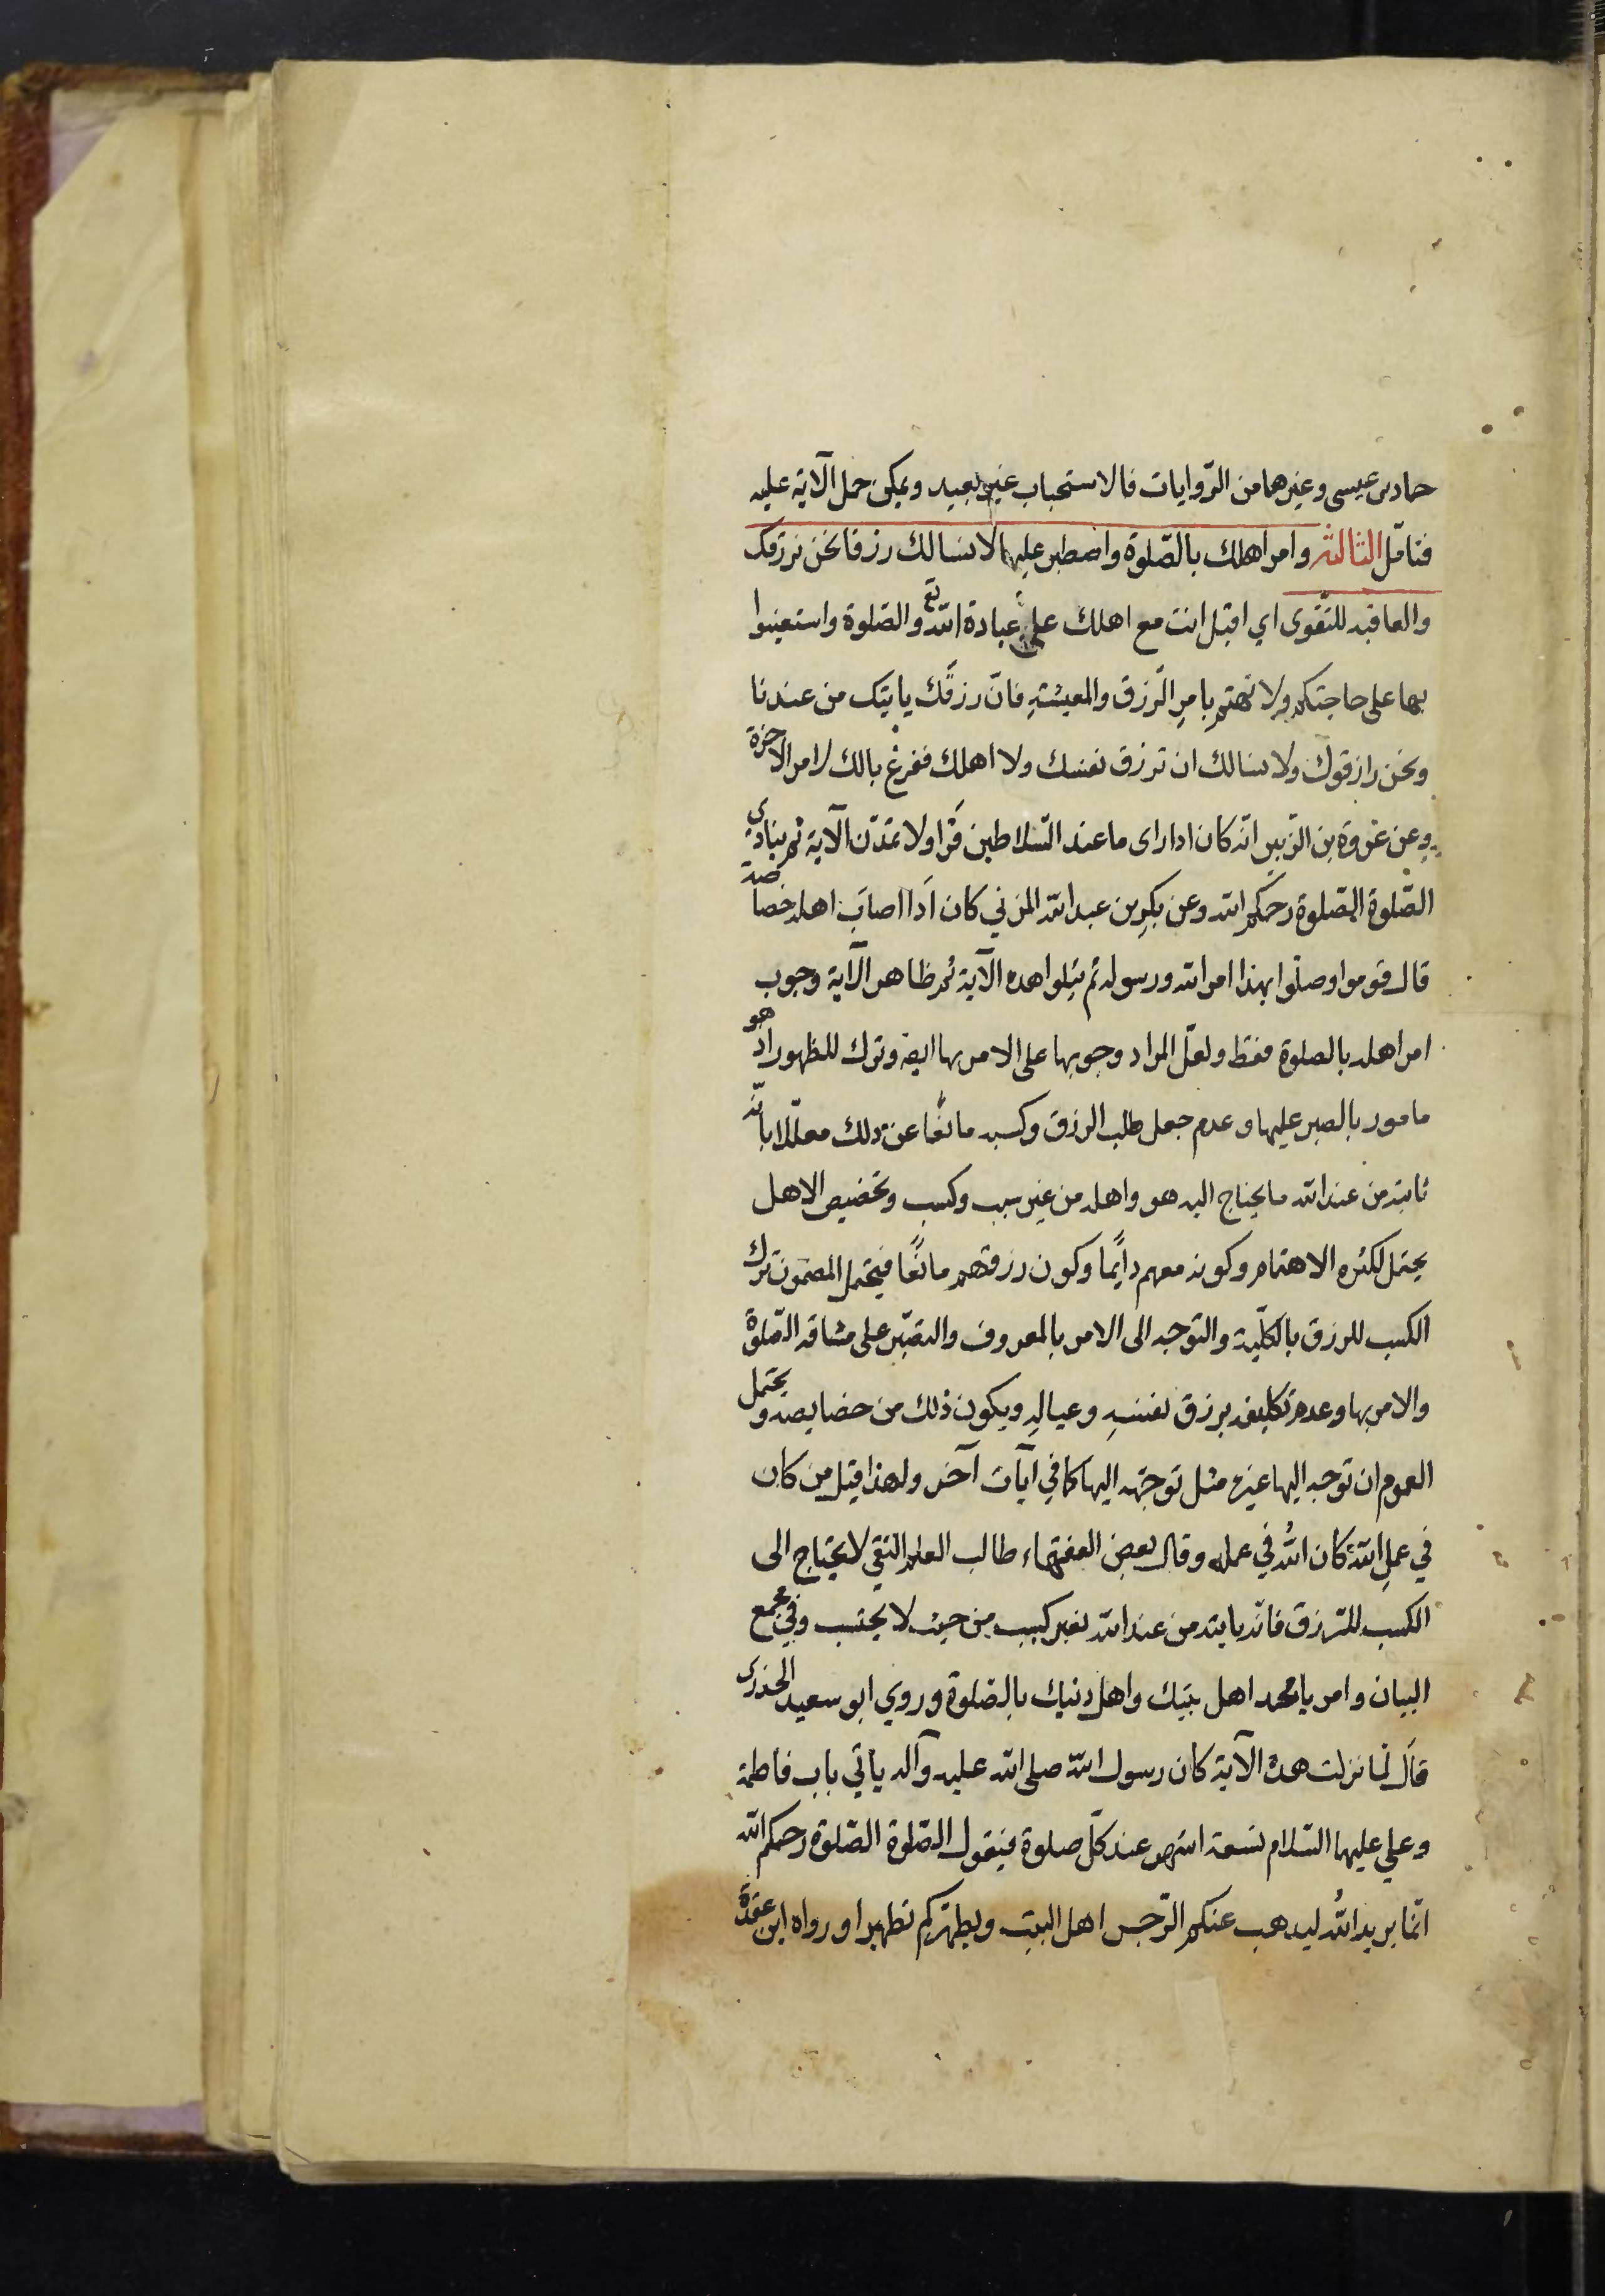 حماد بن عيسى وغيرهما من الرّوايات فالاستحباب غير بعيد ويمكن حمل الآية عليه
فتامّل الثالثة وامر اهلك بالصّلوة واصطبر عليها لا نسالك رزقا نحن نرزقك
والعاقبة للتّقوى اي اقبل انت مع اهلك على عبادة الله تع والصّلوة واستعينوا
بها على حاجتكم ولا تهتم بامرِ الرّزق والمعيشةِ فانّ رزقَك ياتيك من عندنا
ونحن رازقوك ولا نسالك ان ترزق نفسك ولا اهلك ففرغ بالك لامر الاخرة
وعن عروة بن الزّبير انّه كان اذا راى ما عند السّلاطين قَرَا ولا تمدّن الآية ثم ينادي
الصّلوة الصّلوة رحمكم الله وعن بكرِ بن عبد الله المزني كان اذا اصابَ اهله خصاصة
قال قوموا وصلّوا بهذا امر الله ورسوله ثم يتلوا هذه الآية ثم ظاهر الآية وجوب
امر اهله بالصلوة فقط ولعلّ المراد وجوبها على الامر بها ايضه وترك للظهور اذ هو
مامور بالصبر عليها وعدم جعل طلب الرزق وكسبه مانعًا عن ذلك معلّلا بانّه
ياتيه من عند الله ما يحتاج اليه هو واهله من غير سبب وكسب وتخصيص الاهل
يحتمل لكثرة الاهتمام وكونه معهم دايمًا وكون رزقهم مانعًا فيحتمل المضمون ترك
الكسب للرزق بالكلّية والتوجه الى الامر بالمعروف والتصبّر على مشاقه الصّلوة
والامر بها وعدم تكليفه برزق نفسهِ وعيالهِ ويكون ذلك من خصايصه ويحتمل
العموم ان توجه اليها غيره مثل توجّهه اليها كما في آيات آخر ولهذا قيل من كان
في عملِ الله كان اللهُ في عمله وقال بعض الفقهاء طالب العلم التقي لا يحتاج الى
الكسب للرّزق فانّه ياتيه من عند الله بغير كسب من حيث لا يحتسب وفي مجمع
البيان وامر يا محمد اهل بيتك واهل دينك بالصّلوة وروي ابو سعيد الخدرى
قال لمّا نزلت هذه الآية كان رسول الله صلى الله عليه وآله ياتي باب فاطمة
وعلي عليهما السّلام تسعة اشهر عند كلّ صلوة فيقول الصّلوة الصّلوة رحمكم الله
انّما يريد اللهُ ليذهب عنكم الرّجس اهل البيت ويطهّركم تطهيرا ورواه ابن عقدة